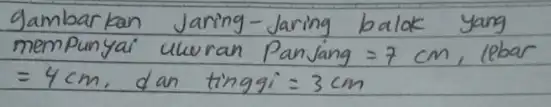 gambarkan Jaring-Jaring balok yang
mempunyai ukuran Panjang = 7 cm, lebar
= 4 cm, dan tinggi = 3 cm